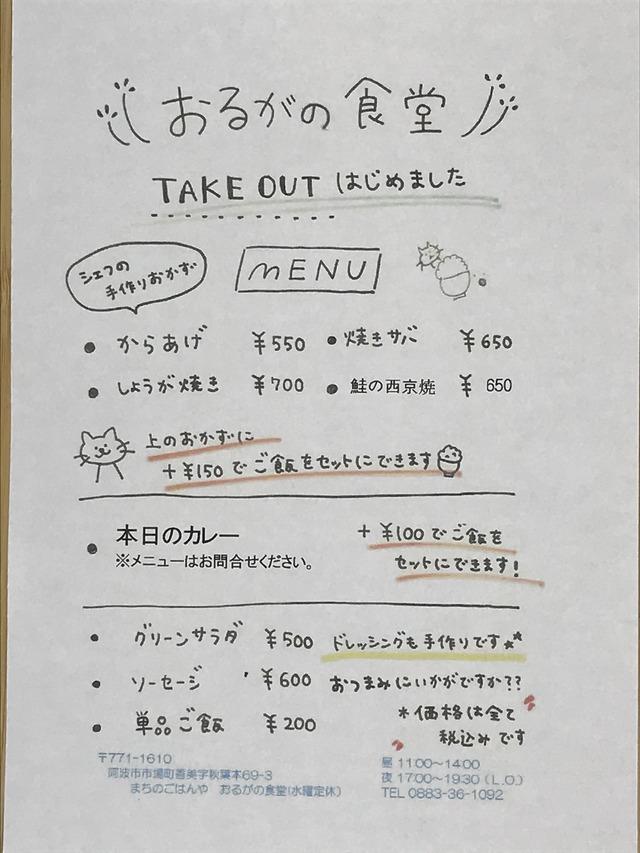 おるがの食堂
TAKE OUT はじめました
シェフの
手作りおかず
MENU
● からあげ ¥550 ● 焼きサバ ¥650
● しょうが焼き ¥700 ● 鮭の西京焼 ¥ 650
上のおかずに
+¥150でご飯をセットにできます
● 本日のカレー
※メニューはお問合せください。
+¥100でご飯を
セットにできます!
● グリーンサラダ ¥500 ドレッシングも手作りです
● ソーセージ ¥600 おつまみにいかがですか??
● 単品ご飯 ¥200
*価格は全て
税込みです
〒771-1610
阿波市市場町香美字秋葉本69-3
まちのごはんや おるがの食堂(水曜定休)
昼 11:00~14:00
夜 17:00~19:30(L.O.)
TEL 0883-36-1092